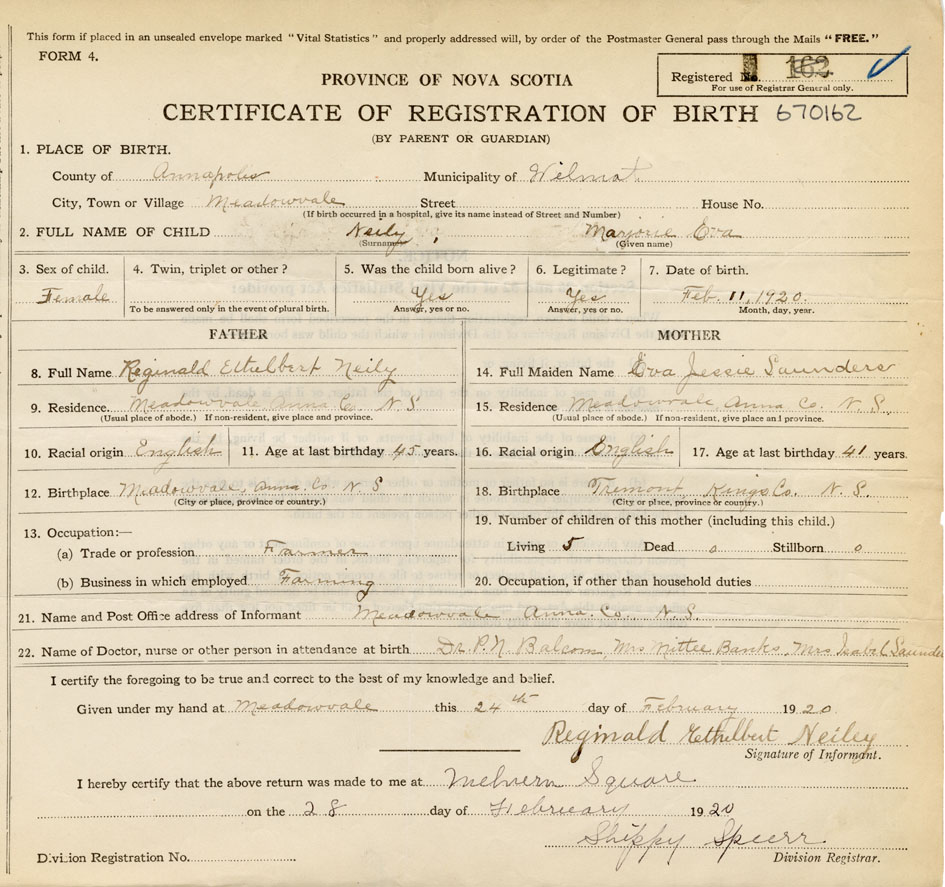 This form if placed in an unsealed envelope marked "Vital Statistics" and properly addressed will, by order of the Postmaster General pass through the Mails "FREE."
FORM 4.
Registered No. 162
For use of Registrar General only.
PROVINCE OF NOVA SCOTIA
CERTIFICATE OF REGISTRATION OF BIRTH 670162
(BY PARENT OR GUARDIAN)
1. PLACE OF BIRTH.
County of Annapolis Municipality of Wilmot
City, Town or Village Meadowvale Street House No.
(If birth occurred in a hospital, give its name instead of Street and Number)
2. FULL NAME OF CHILD Neily, Marjorie Eva
(Surname) (Given name)
3. Sex of child. 4. Twin, triplet or other? 5. Was the child born alive? 6. Legitimate? 7. Date of birth.
Female Yes Yes Feb. 11, 1920.
To be answered only in the event of plural birth. Answer, yes or no. Answer, yes or no. Month, day, year.
FATHER MOTHER
8. Full Name Reginald Ethelbert Neily 14. Full Maiden Name Eva Jessie Saunders
9. Residence. Meadowvale, Anna Co. N S 15. Residence Meadowvale, Anna Co. N. S.
(Usual place of abode.) If non-resident, give place and province. (Usual place of abode.) If non-resident, give place and province.
10. Racial origin English 11. Age at last birthday 45 years. 16. Racial origin English 17. Age at last birthday 41 years.
12. Birthplace Meadowvale, Anna. Co. N. S 18. Birthplace Tremont, Kings Co. N. S.
(City or place, province or country.) (City or place, province or country.)
13. Occupation:— 19. Number of children of this mother (including this child.)
(a) Trade or profession Farmer Living 5 Dead 0 Stillborn 0
(b) Business in which employed Farming 20. Occupation, if other than household duties
21. Name and Post Office address of Informant Meadowvale Anna. Co. N. S.
22. Name of Doctor, nurse or other person in attendance at birth Dr. P. N. Balcom, Mrs Mittee Banks, Mrs Isabel Saunde
I certify the foregoing to be true and correct to the best of my knowledge and belief.
Given under my hand at Meadowvale this 24th day of February 1920.
Reginald Ethelbert Neiley
Signature of Informant.
I hereby certify that the above return was made to me at Melvern Square
on the 28 day of February 1920
Shippy Spurr
Division Registration No. Division Registrar.